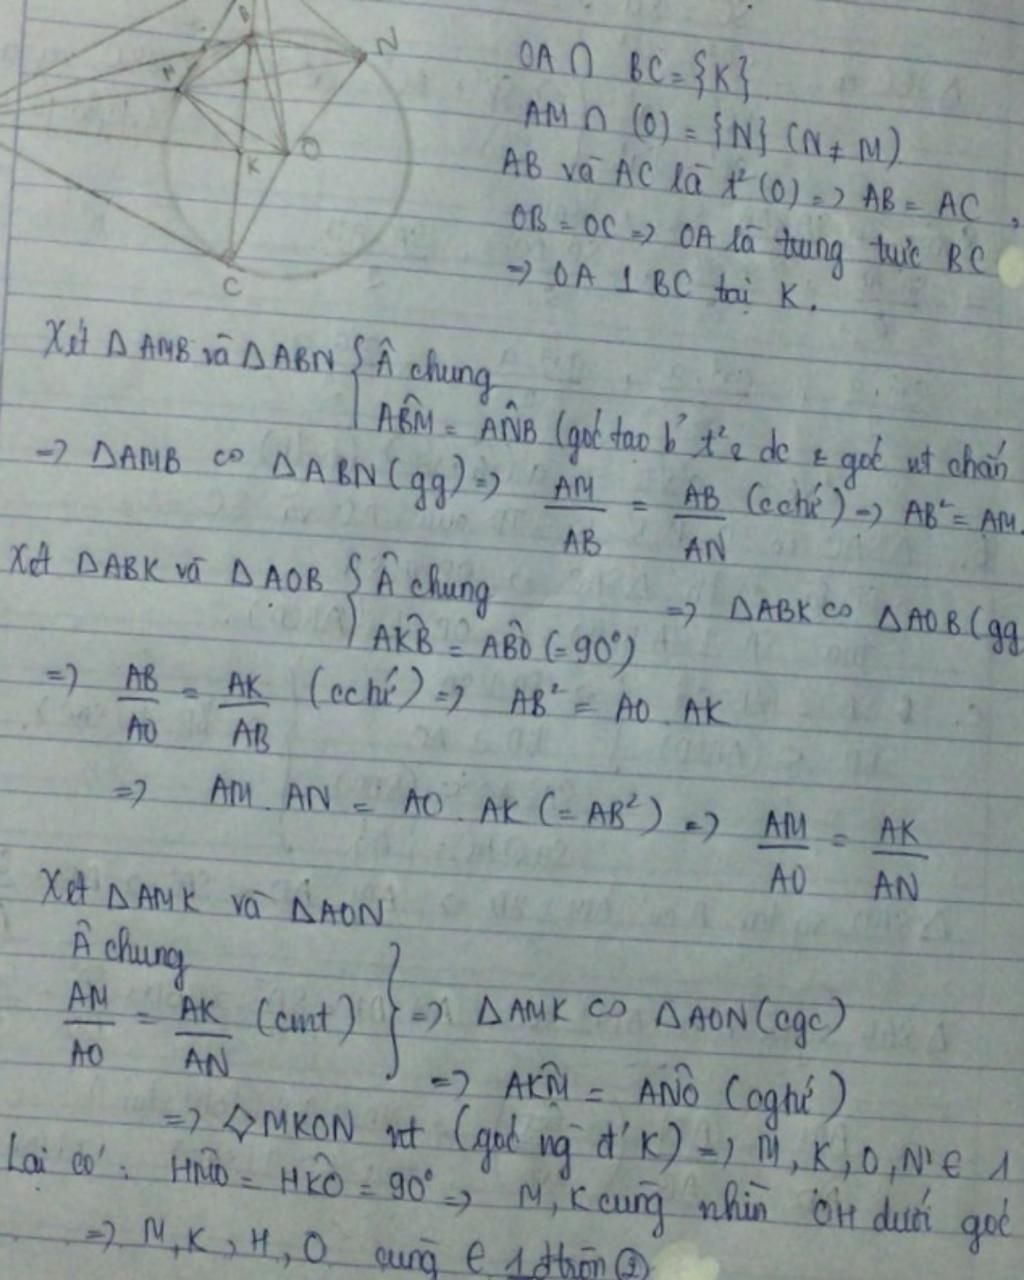 B
N
M
O
K
C
OA ∩ BC = {K}
AM ∩ (O) = {N} (N ≠ M)
AB và AC là t² (O) => AB = AC,
OB = OC => OA là trung trực BC
=> OA ⊥ BC tại K.
Xét ΔAMB và ΔABN { Â chung
AB̂M = AN̂B (góc tạo b' t² & dc & góc nt chắn
=> ΔAMB ∽ ΔABN (gg) => AM/AB = AB/AN (cché) => AB² = AM.
Xét ΔABK và ΔAOB { Â chung => ΔABK ∽ ΔAOB (gg
AK̂B = AB̂O (= 90°)
=> AB/AO = AK/AB (cché) => AB² = AO . AK
=> AM . AN = AO . AK (= AB²) => AM/AO = AK/AN
Xét ΔAMK và ΔAON
Â chung
AM/AO = AK/AN (cmt) } => ΔAMK ∽ ΔAON (cgc)
=> AK̂M = AN̂O (cghé)
=> ◇MKON nt (góc ng đ' K) => M, K, O, N ∈ 1
Lại có: HM̂O = HK̂O = 90° => M, K cùng nhìn OH dưới góc
=> M, K, H, O cùng ∈ 1 đtròn ②